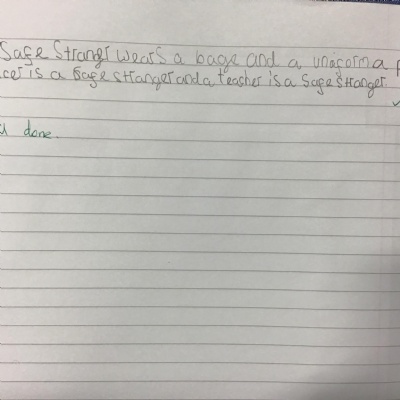 Safe Stranger wears a bage and a uniform a
cer is a safe stranger and a teacher is a safe stranger.
done.